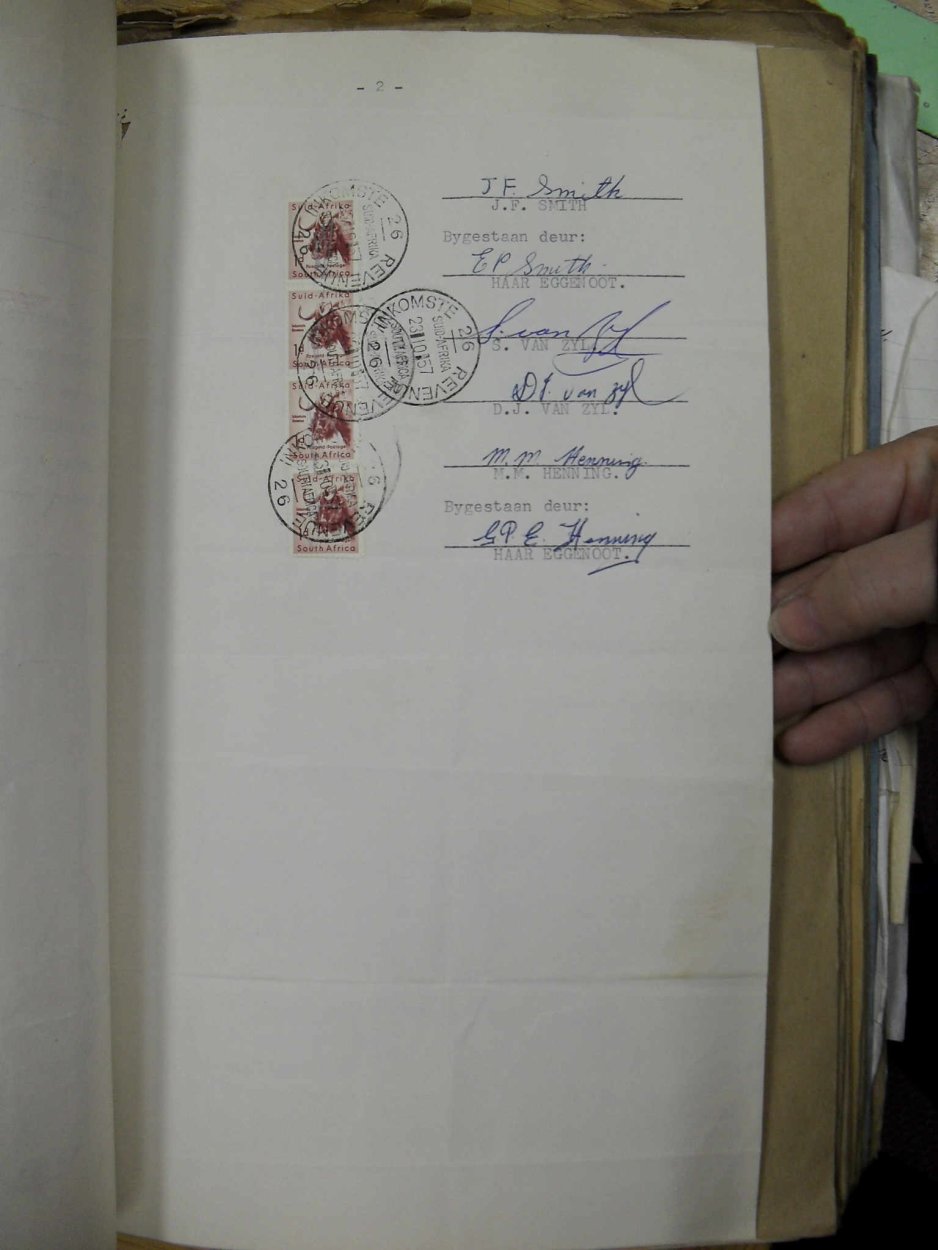 - 2 -
J.F. Smith
J.F. SMITH
Bygestaan deur:
E P Smith
HAAR EGGENOOT.
S. van Zyl
S. VAN ZYL.
D J van Zyl
D.J. VAN ZYL.
M. M. Henning
M.M. HENNING.
Bygestaan deur:
G.P.E. Henning
HAAR EGGENOOT.
Suid-Afrika
South Africa
INKOMSTE 26 REVENUE 26
SUID-AFRIKA
Suid-Afrika
1d
South Africa
INKOMSTE 26 REVENUE 26
23 10 57
SUID-AFRIKA
SOUTH AFRICA
South Africa
Suid-Afrika
South Africa
26